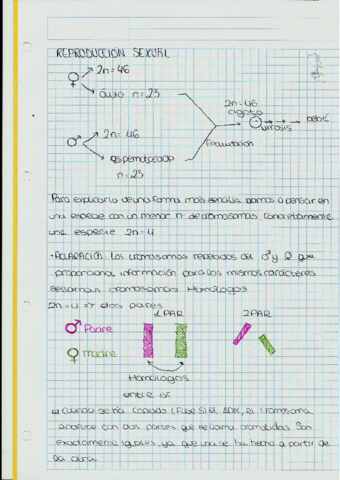 REPRODUCCION SEXUAL
♀ 2n=46
óvulo n=23
♂ 2n=46
espermatozoo
n=23
Fecundación
2n=46
cigoto
mitosis
bebé
Para explicarlo de una forma más sencilla vamos a pensar en
una especie con un menor nº de cromosomas. Concretamente
una especie 2n=4
·ACLARACIÓN: Los cromosomas repetidos del ♂ y ♀ que
proporcionan información para los mismos carácteres
se llaman cromosomas Homólogos
2n=4 => dos pares
1 PAR 2 PAR
♂ Padre
♀ madre
Homólogos
entre sí
Cuando se ha copiado (Fase S) el ADN, el cromosoma
aparece con dos partes que se llama cromátidas. Son
exactamente iguales, ya que una se ha hecho a partir de
la otra.